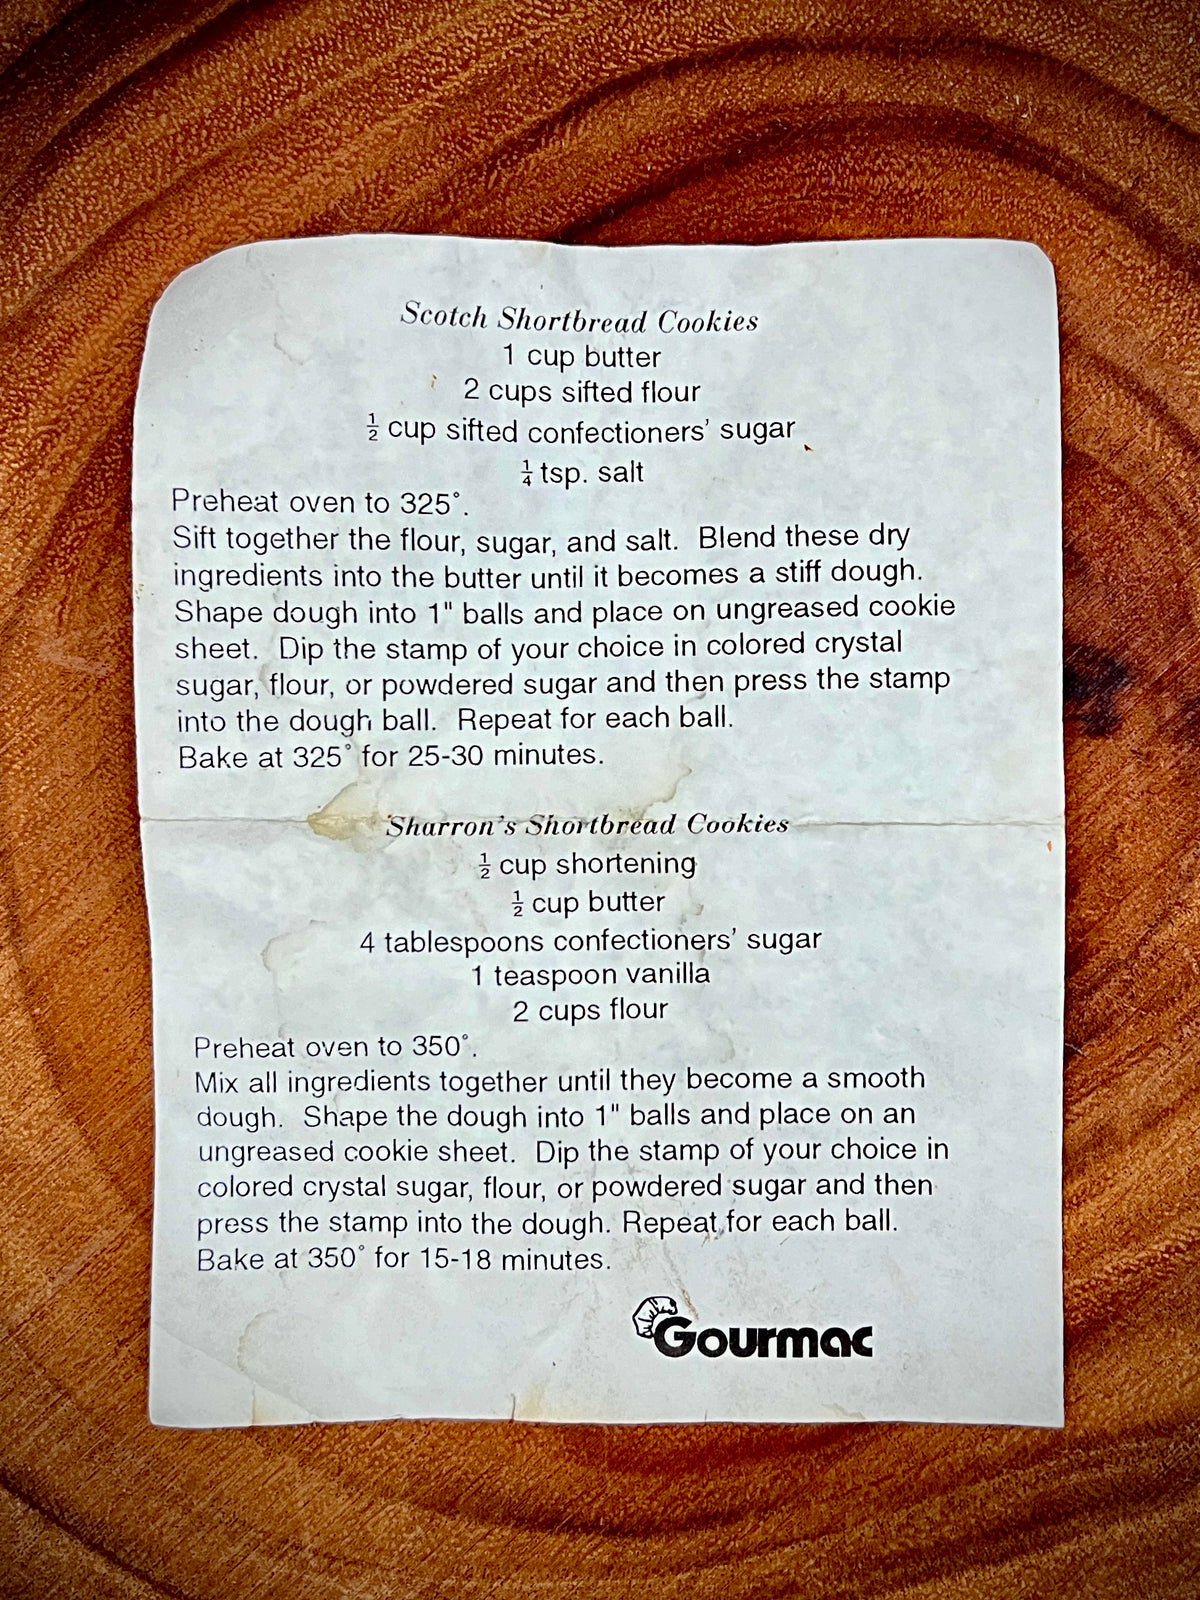 Scotch Shortbread Cookies
1 cup butter
2 cups sifted flour
½ cup sifted confectioners' sugar
¼ tsp. salt
Preheat oven to 325°.
Sift together the flour, sugar, and salt.  Blend these dry
ingredients into the butter until it becomes a stiff dough.
Shape dough into 1" balls and place on ungreased cookie
sheet.  Dip the stamp of your choice in colored crystal
sugar, flour, or powdered sugar and then press the stamp
into the dough ball.  Repeat for each ball.
Bake at 325° for 25-30 minutes.
Sharron's Shortbread Cookies
½ cup shortening
½ cup butter
4 tablespoons confectioners' sugar
1 teaspoon vanilla
2 cups flour
Preheat oven to 350°.
Mix all ingredients together until they become a smooth
dough.  Shape the dough into 1" balls and place on an
ungreased cookie sheet.  Dip the stamp of your choice in
colored crystal sugar, flour, or powdered sugar and then
press the stamp into the dough. Repeat for each ball.
Bake at 350° for 15-18 minutes.
Gourmac